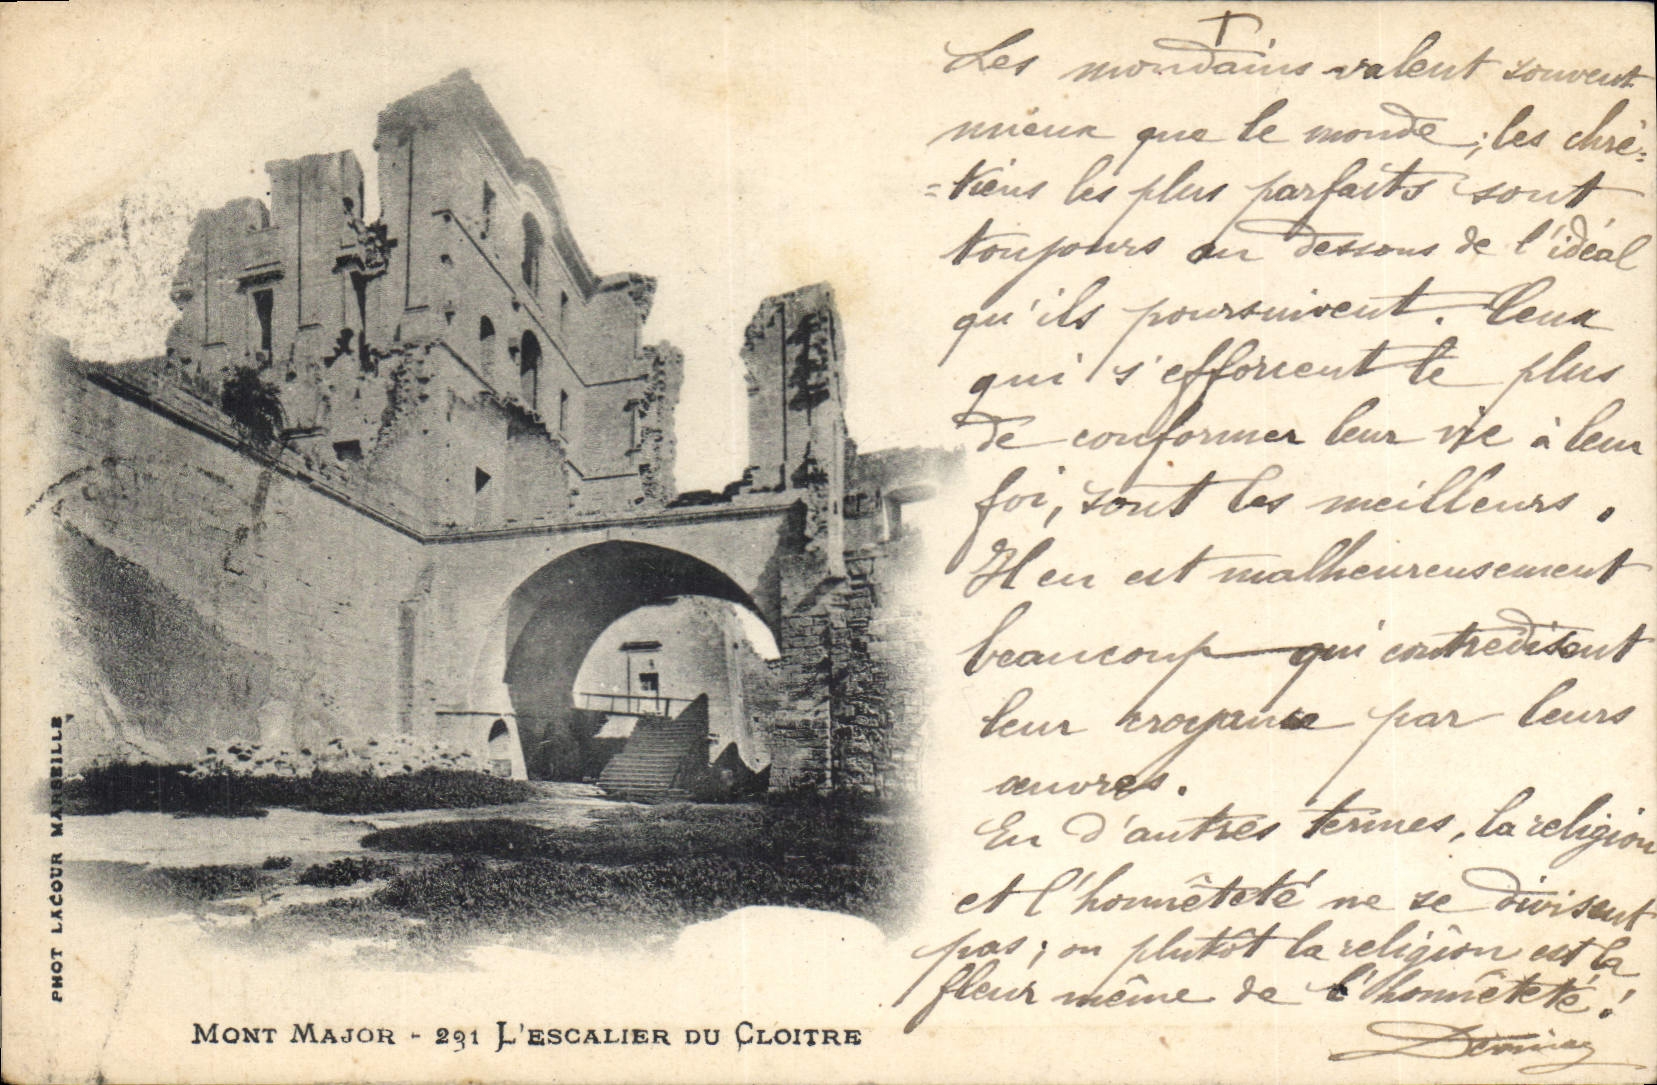 Les mondains valent souvent
mieux que le monde ; les chré=
=tiens les plus parfaits sont
toujours au dessous de l'idéal
qu'ils poursuivent. Ceux
qui s'efforcent le plus
de conformer leur vie à leur
foi, sont les meilleurs.
Il en est malheureusement
beaucoup qui contredisent
leur croyance par leurs
œuvres.
En d'autres termes, la religion
et l'honnêteté ne se divisent
pas ; ou plutôt la religion est la
fleur même de l'honnêteté !
PHOT LACOUR MARSEILLE
MONT MAJOR - 291 L'ESCALIER DU CLOITRE